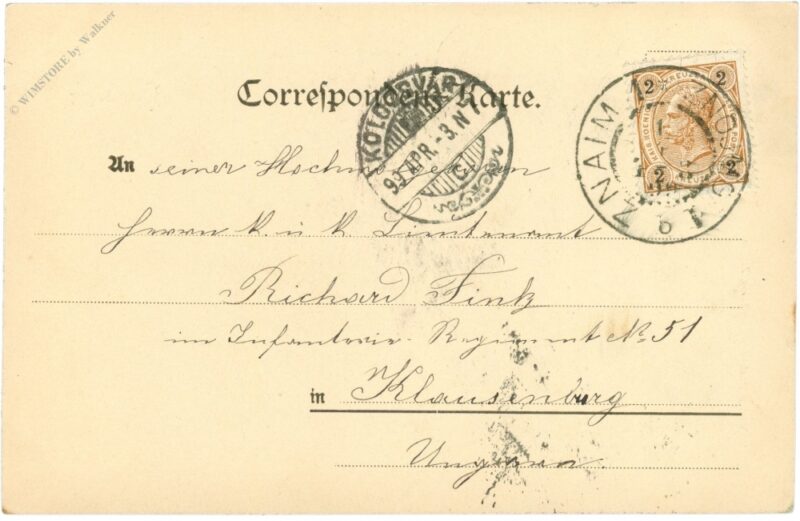 © WIMSTORE by Walkner
Correspondenz-Karte.
KOLOZSVÁR
99 APR. -3. N 7
ZNAIM
2 2
2 2
An seiner Hochwohlgeboren
Herrn k. u. k. Lieutenant
Richard Fink
im Infanterie-Regiment No. 51
in Klausenburg
Ungarn.